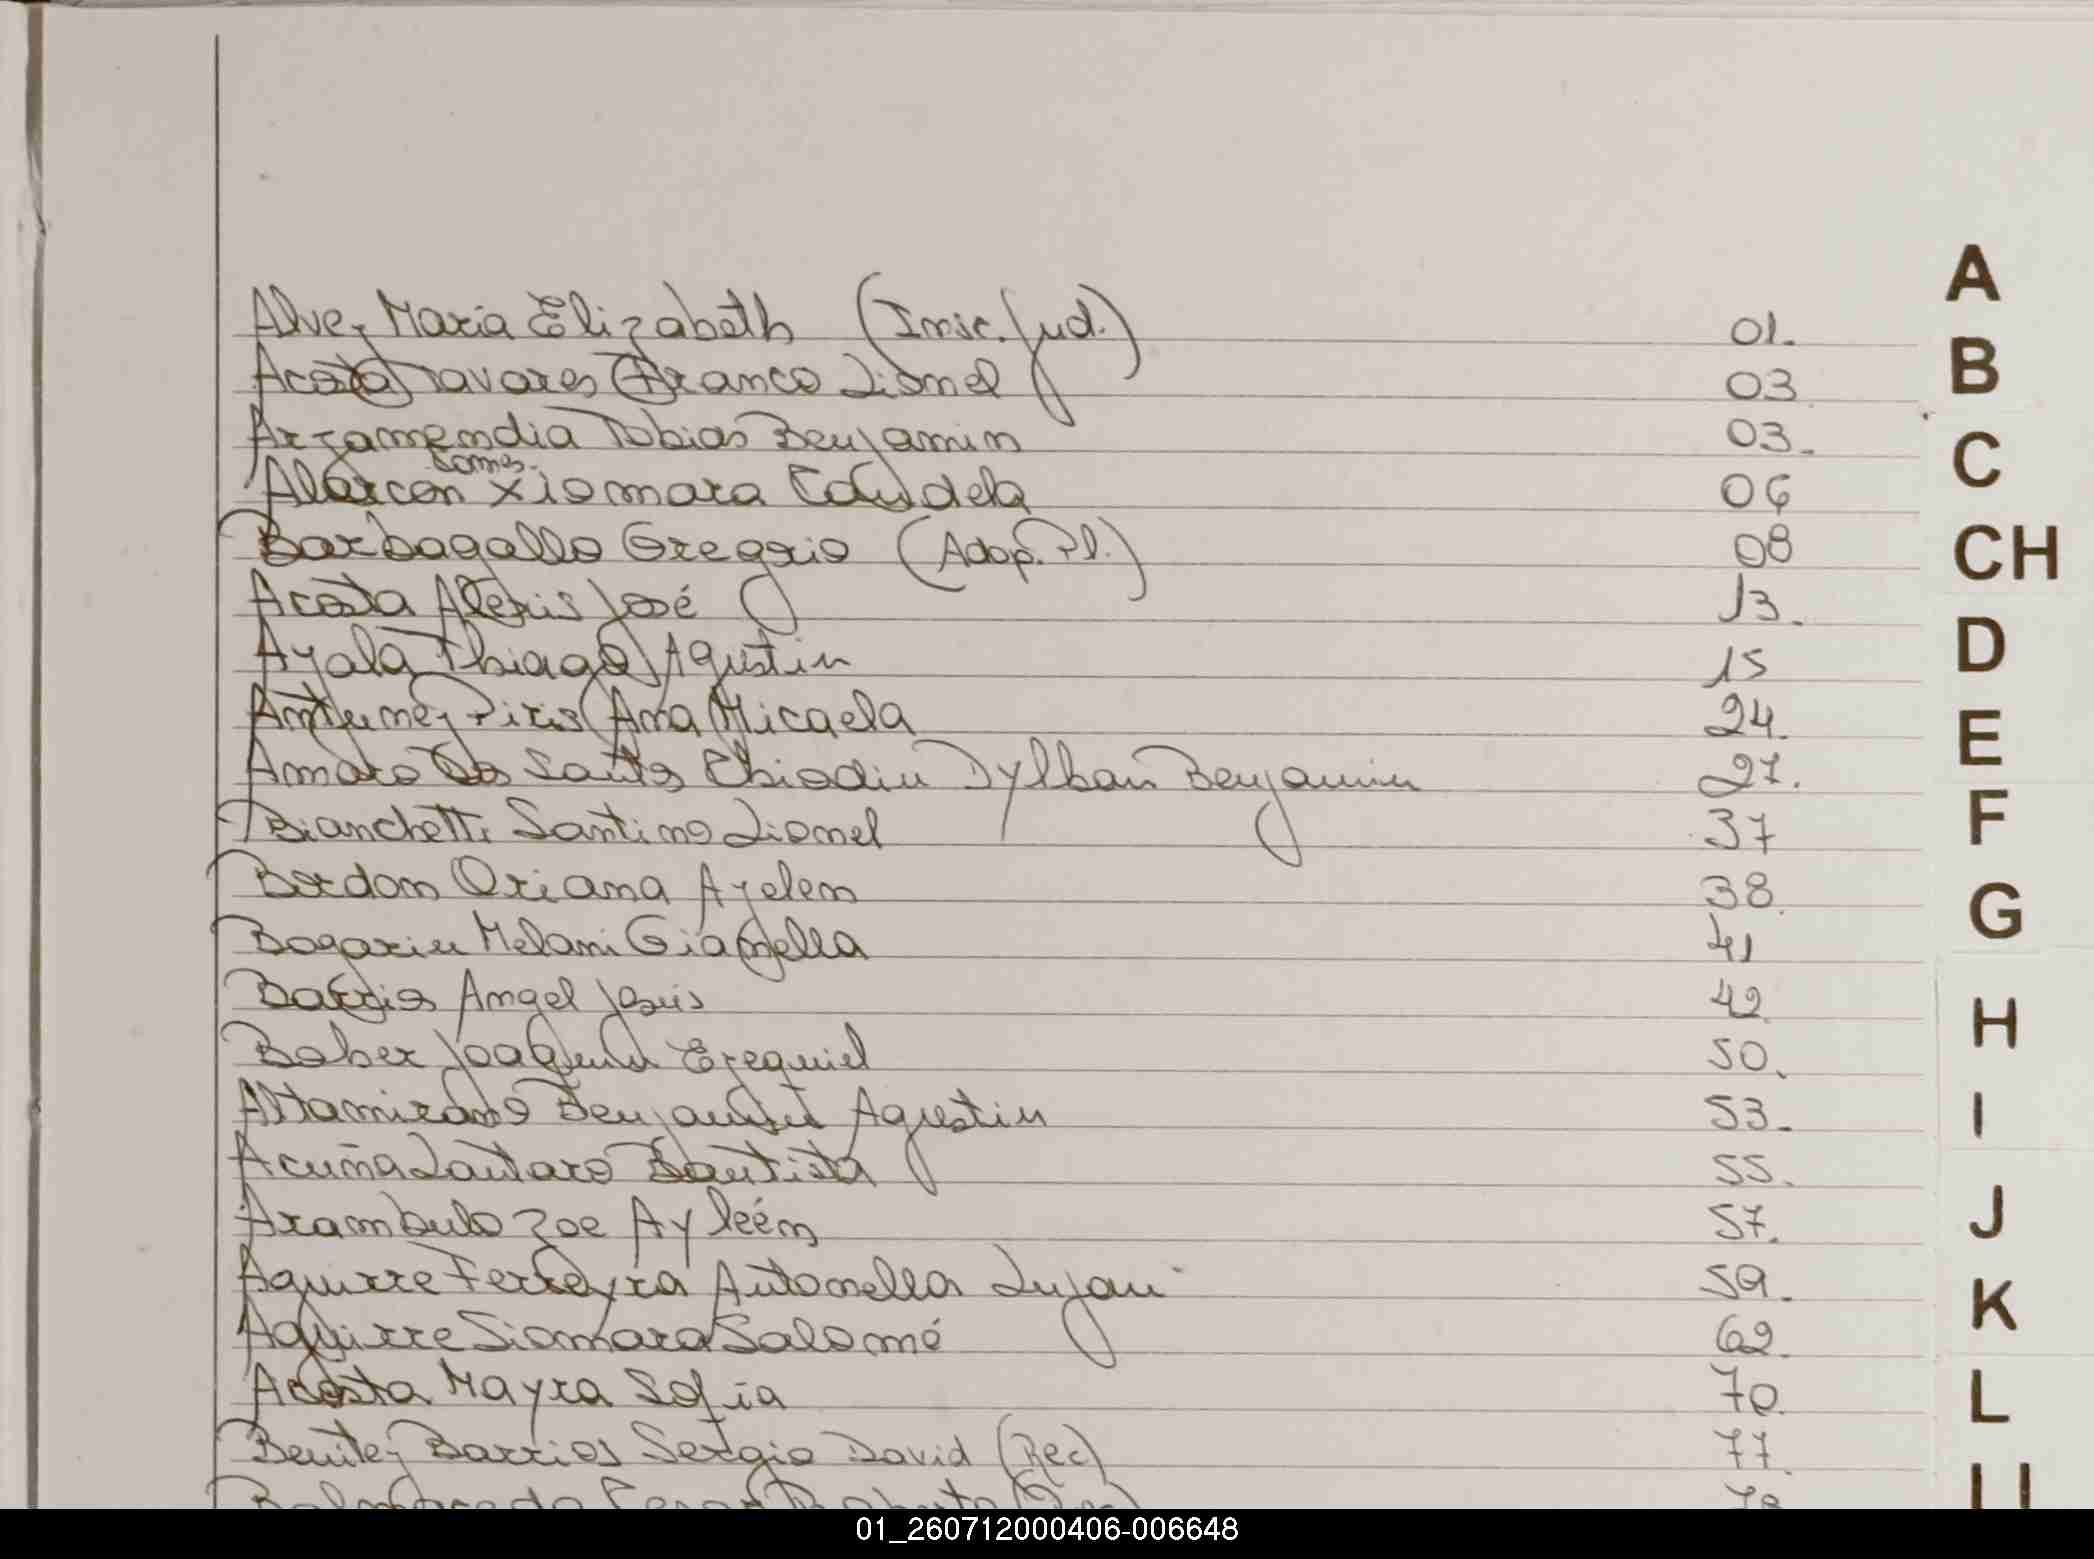 Alvez Maria Elizabeth (Insc. Jud.) 01.
Acosta Tavares Franco Lionel 03
Arzamendia Tobias Benjamin 03.
Gomes
Alarcon Xiomara Candela 06
Barbagallo Gregorio (Adop. Pl.) 08
Acosta Alexis José 13.
Ayala Thiago Agustin 15
Antunez Piris Ana Micaela 24.
Amaro Dos Santos Chiodin Dylhan Benjamin 27.
Bianchetti Santino Lionel 37
Bordon Oriana Ayelen 38.
Bogarin Melani Gianella 41
Barrios Angel Jesús 42
Bober Joaquin Ezequiel 50.
Altamirano Benjamin Agustin 53.
Acuña Lautaro Bautista 55.
Arambulo Zoe Ayleén 57.
Aguirre Ferreyra Antonella Lujan 59.
Aguirre Siomara Salomé 62.
Acosta Mayra Sofia 70.
Benitez Barrios Sergio David (Rec) 77.
A
B
C
CH
D
E
F
G
H
I
J
K
L
01_260712000406-006648